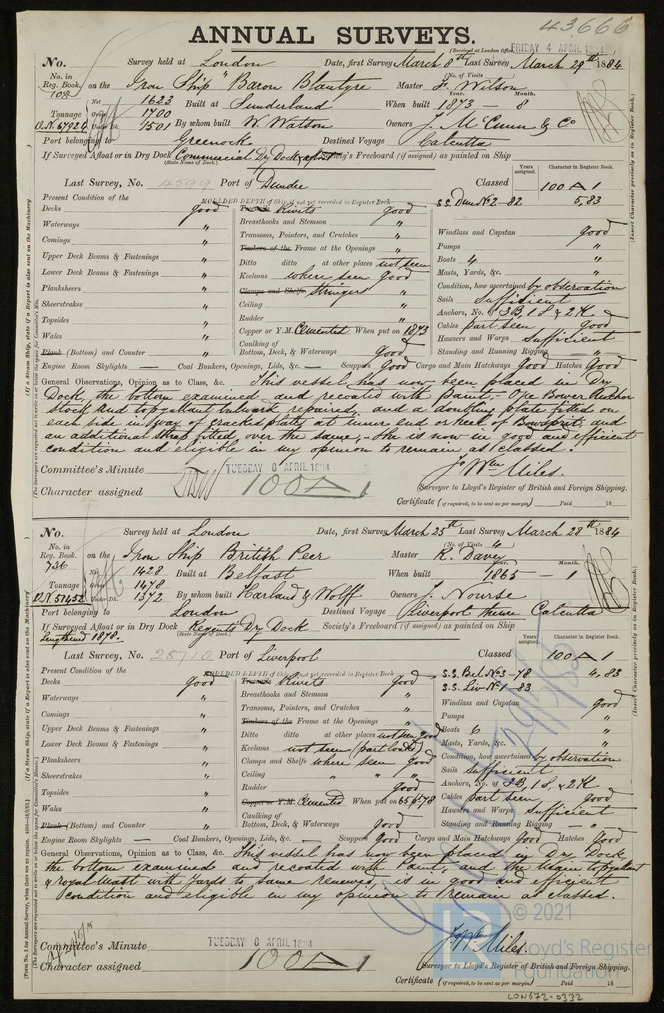 43666
ANNUAL SURVEYS.
(Received at London Office, FRIDAY 4 APRIL 1884
No. Survey held at London Date, first Survey March 8th Last Survey March 29th 1884
No. in Reg. Book. on the Iron Ship "Baron Blantyre Master F. Wilson
(No. of Visits
Net 1623 Built at Sunderland When built 1873 - 8
Year. Month.
Tonnage Gross 1700 By whom built W. Watson Owners J. McCunn & Co
O.N. 67924 Under Dk. 1501
Port belonging to Greenock Destined Voyage Calcutta
If Surveyed Afloat or in Dry Dock Commercial Dry Dock & afloat Society's Freeboard (if assigned) as painted on Ship
(State Name of Dock.)
Last Survey, No. 4599 Port of Dundee Classed 100A1
Years assigned. Character in Register Book.
S.S. Dun No 2-82 5,83
Present Condition of the MOULDED DEPTH of Ship, if not yet recorded in Register Book
Decks Good Rivets Good
Waterways " Breasthooks and Stemson " Windlass and Capstan Good
Comings " Transoms, Pointers, and Crutches " Pumps "
Upper Deck Beams & Fastenings " Timbers of the Frame at the Openings " Boats 4 "
Lower Deck Beams & Fastenings " Ditto ditto at other places not seen Masts, Yards, &c. "
Planksheers " Keelsons where seen Good Condition, how ascertained by observation
Sheerstrakes " Clamps and Shelfs Stringers " Sails Sufficient
Topsides " Ceiling " Anchors, No. of 3B, 1S, & 2K
Wales " Rudder " Cables part seen Good
Plank (Bottom) and Counter " Copper or Y.M. Cemented When put on 1873 Hawsers and Warps Sufficient
Caulking of Bottom, Deck, & Waterways Good Standing and Running Rigging Good
Engine Room Skylights — Coal Bunkers, Openings, Lids, &c. — Scuppers Good Cargo and Main Hatchways Good Hatches Good
General Observations, Opinion as to Class, &c. This vessel has now been placed in Dry
Dock, the bottom examined and recoated with paint, - One Bower Anchor
stock and topgallant bulwark repaired, and a doubling plate fitted on
each side in way of cracked plate, at inner end or heel of Bowsprit and
an additional strap fitted over the same, - She is now in good and efficient
condition and eligible in my opinion to remain as classed.
Committee's Minute TUESDAY 8 APRIL 1884
J. Wm Miles.
Character assigned 100A1
Surveyor to Lloyd's Register of British and Foreign Shipping.
Certificate (if required, to be sent as per margin) Paid 18
No. Survey held at London Date, first Survey March 25th Last Survey March 28th 1884
(No. of Visits 4
No. in Reg. Book. on the Iron Ship British Peer Master R. Davey
Net 1428 Built at Belfast When built 1865 1
Month.
Tonnage Gross 1478 By whom built Harland & Wolff Owners J. Nourse
O.N. 52452 Under Dk. 1372
Port belonging to London Destined Voyage Liverpool thence Calcutta
If Surveyed Afloat or in Dry Dock Regents Dry Dock Society's Freeboard (if assigned) as painted on Ship
lengthened 1878. (State Name of Dock.)
Last Survey, No. 25710 Port of Liverpool Classed 100A1
Years assigned. Character in Register Book.
S.S. Bel No 3-78 4,83
S.S. Liv No 1-83
Present Condition of the MOULDED DEPTH of Ship, if not yet recorded in Register Book
Decks Good Rivets Good
Waterways " Breasthooks and Stemson " Windlass and Capstan Good
Comings " Transoms, Pointers, and Crutches " Pumps "
Upper Deck Beams & Fastenings " Timbers of the Frame at the Openings " Boats 6 "
Lower Deck Beams & Fastenings " Ditto ditto at other places not seen Good Masts, Yards, &c. "
Planksheers " Keelsons not seen (part loaded) Condition, how ascertained by observation
Sheerstrakes " Clamps and Shelfs where seen Good Sails sufficient
Topsides " Ceiling " " " Anchors, No. of 3B, 1S, & 2K
Wales " Rudder Good Cables part seen Good
Plank (Bottom) and Counter " Copper or Y.M. Cemented When put on 65 & 78 Hawsers and Warps Sufficient
Caulking of Bottom, Deck, & Waterways Good Standing and Running Rigging "
Engine Room Skylights — Coal Bunkers, Openings, Lids, &c. — Scuppers Good Cargo and Main Hatchways Good Hatches Good
General Observations, Opinion as to Class, &c. This vessel has now been placed in Dry Dock
the bottom examined and recoated with Paint, and the Main topgallant
& royal Mast with Yards to same renewed, is in good and efficient
condition and eligible in my opinion to remain as classed.
Committee's Minute TUESDAY 8 APRIL 1884
J. Wm Miles.
Character assigned 100A1
Surveyor to Lloyd's Register of British and Foreign Shipping.
Certificate (if required, to be sent as per margin) Paid 18
© 2021
Lloyd's Register
Foundation
LON672-0332